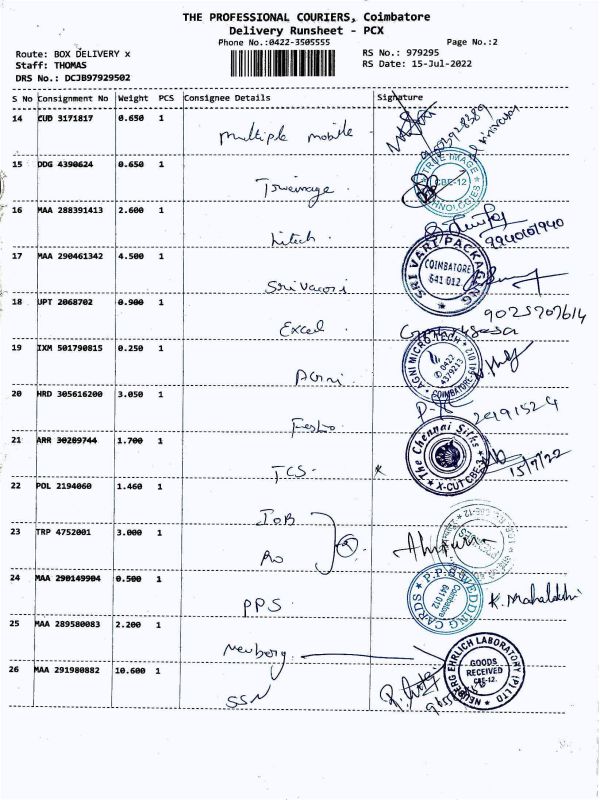 THE PROFESSIONAL COURIERS, Coimbatore
Delivery Runsheet - PCX
Phone No.:0422-3505555 Page No.:2
Route: BOX DELIVERY x RS No.: 979295
Staff: THOMAS RS Date: 15-Jul-2022
DRS No.: DCJB97929502
S No Consignment No Weight PCS Consignee Details Signature
14 CUD 3171817 0.650 1
multiple mobile
15 DDG 4390624 0.650 1
TRUE IMAGE TECHNOLOGIES CBE-12
16 MAA 288391413 2.600 1
Litech
9940161940
17 MAA 290461342 4.500 1
SRI VARI PACKAGING COIMBATORE 641 012
18 UPT 2068702 0.900 1
Excel
9025707614
19 IXM 501790815 0.250 1
Agni
AGNI MICRO TECH 0422 4379213 COIMBATORE-641 012
20 HRD 305616200 3.050 1
Festo
21 ARR 30289744 1.700 1
TCS
The Chennai Silks X-CUT CBE-3
15/7/22
22 POL 2194060 1.460 1
IOB
23 TRP 4752001 3.000 1
RO
24 MAA 290149904 0.500 1
PPS
P.P.S WEDDING CARDS Coimbatore 641 012
K. Mahalakshi
25 MAA 289580083 2.200 1
Neuberg
NEUBERG EHRLICH LABORATORY (P) LTD GOODS RECEIVED CBE-12.
26 MAA 291980882 10.600 1
SSN